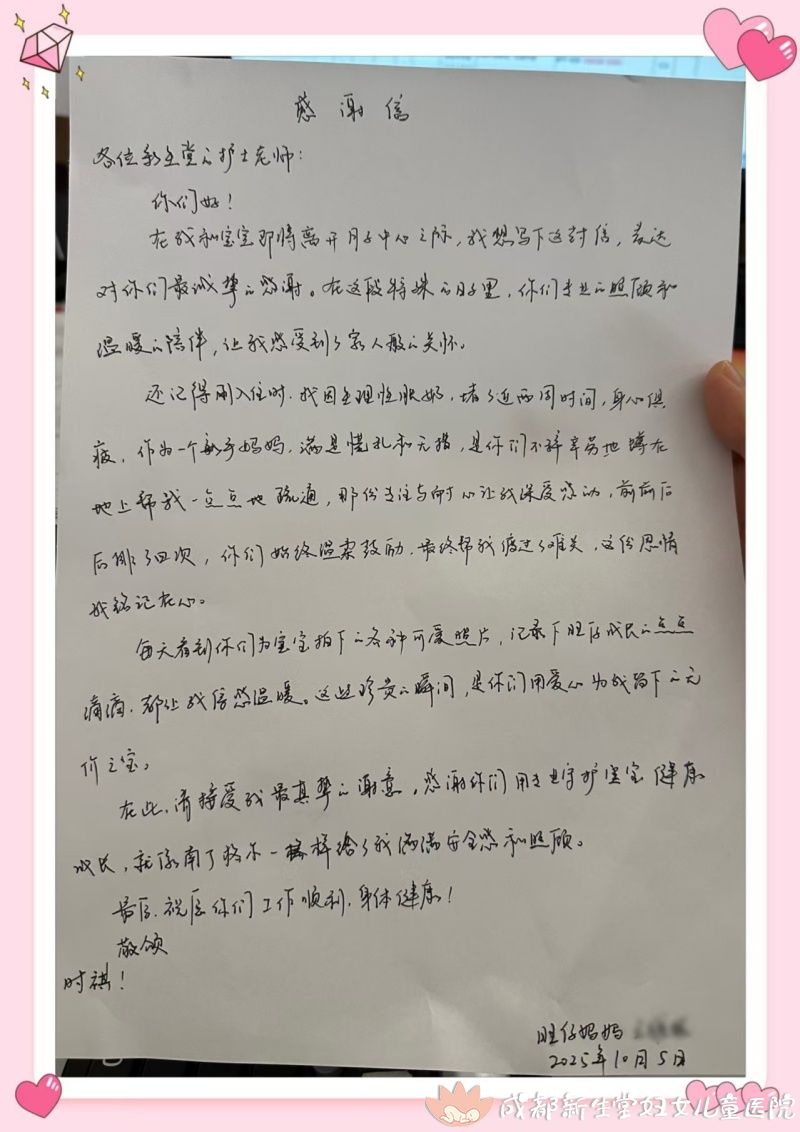 感谢信
各位新生堂的护士老师：
你们好！
在我和宝宝即将离开月子中心之际，我想写下这封信，表达
对你们最诚挚的感谢。在这段特殊的日子里，你们专业的照顾和
温暖的陪伴，让我感受到了家人般的关怀。
还记得刚入住时，我因生理性胀奶，堵了近两周时间，身心俱
疲，作为一个新手妈妈，满是慌乱和无措，是你们不辞辛劳地蹲在
地上帮我一点点地疏通，那份专注与耐心让我深受感动，前前后
后排了四次，你们始终温柔鼓励，最终帮我渡过了难关，这份恩情
我铭记在心。
每天看到你们为宝宝拍下的各种可爱照片，记录下旺仔成长的点点
滴滴，都让我倍感温暖。这些珍贵的瞬间，是你们用爱心为我留下的无
价之宝。
在此，请接受我最真挚的谢意，感谢你们用专业守护宝宝健康
成长，就像南丁格尔一样给了我满满安全感和照顾。
最后，祝愿你们工作顺利，身体健康！
敬颂
时祺！
旺仔妈妈
2025年10月5日
成都新生堂妇女儿童医院